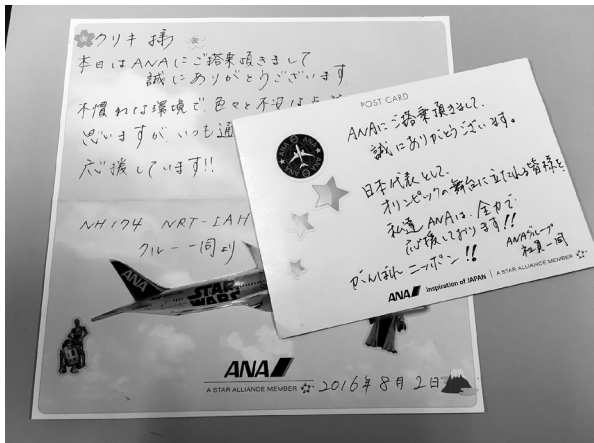 クリキ 様
本日はANAにご搭乗頂きまして
誠にありがとうございます
不慣れな環境で、色々と不安は
思いますが、いつも通
応援しています!!
NH174 NRT-IAH
クルー一同より
STAR WARS
ANA
ANA
A STAR ALLIANCE MEMBER
2016年8月2日
POST CARD
ANAにご搭乗頂きまして、
誠にありがとうございます。
日本代表として、
オリンピックの舞台に立たれる皆様を、
私達ANAは、全力で
応援しております!!
がんばれニッポン!!
ANAグループ
社員一同
ANA inspiration of JAPAN A STAR ALLIANCE MEMBER
ANA ANA ANA ANA